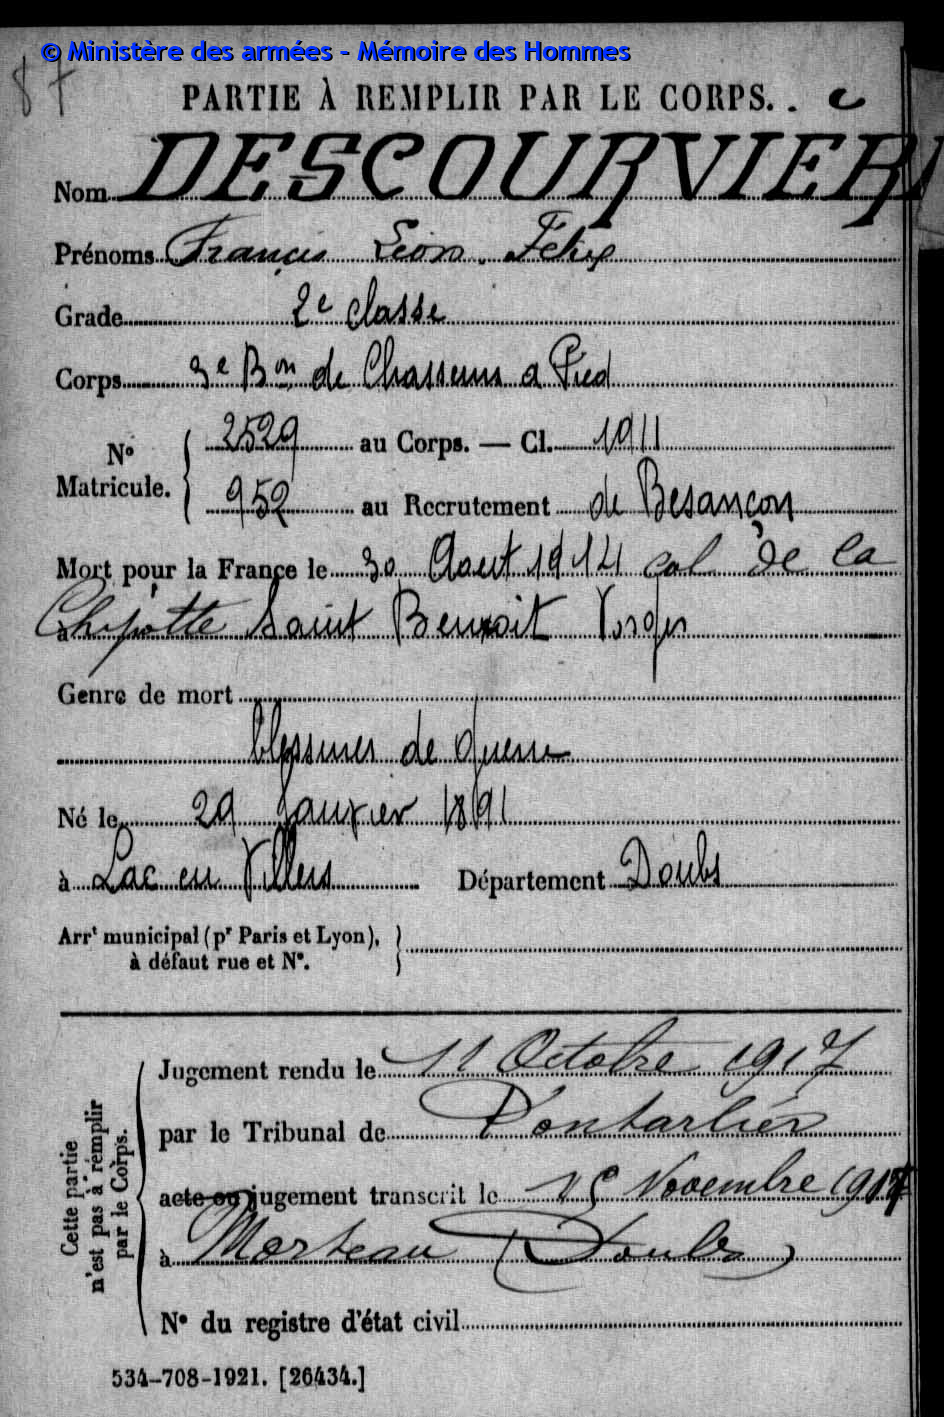 © Ministère des armées - Mémoire des Hommes
87
PARTIE À REMPLIR PAR LE CORPS.
Nom DESCOURVIÈR
Prénoms Francis Léon Felix
Grade 2e classe
Corps 3e Bon de Chasseurs a Pied
N° Matricule. 2529 au Corps. — Cl. 1911
952 au Recrutement de Besançon
Mort pour la France le 30 Aout 1914 col de la
à Chipotte Saint Benoit Vosges
Genre de mort
blessures de guerre
Né le 29 Janvier 1891
à Lac en Villers Département Doubs
Arrt municipal (pr Paris et Lyon),
à défaut rue et N°.
Cette partie n'est pas à remplir par le Corps.
Jugement rendu le 11 Octobre 1917
par le Tribunal de Pontarlier
acte ou jugement transcrit le 15 Novembre 1917
à Morteau (Doubs)
N° du registre d'état civil
534-708-1921. [26434.]